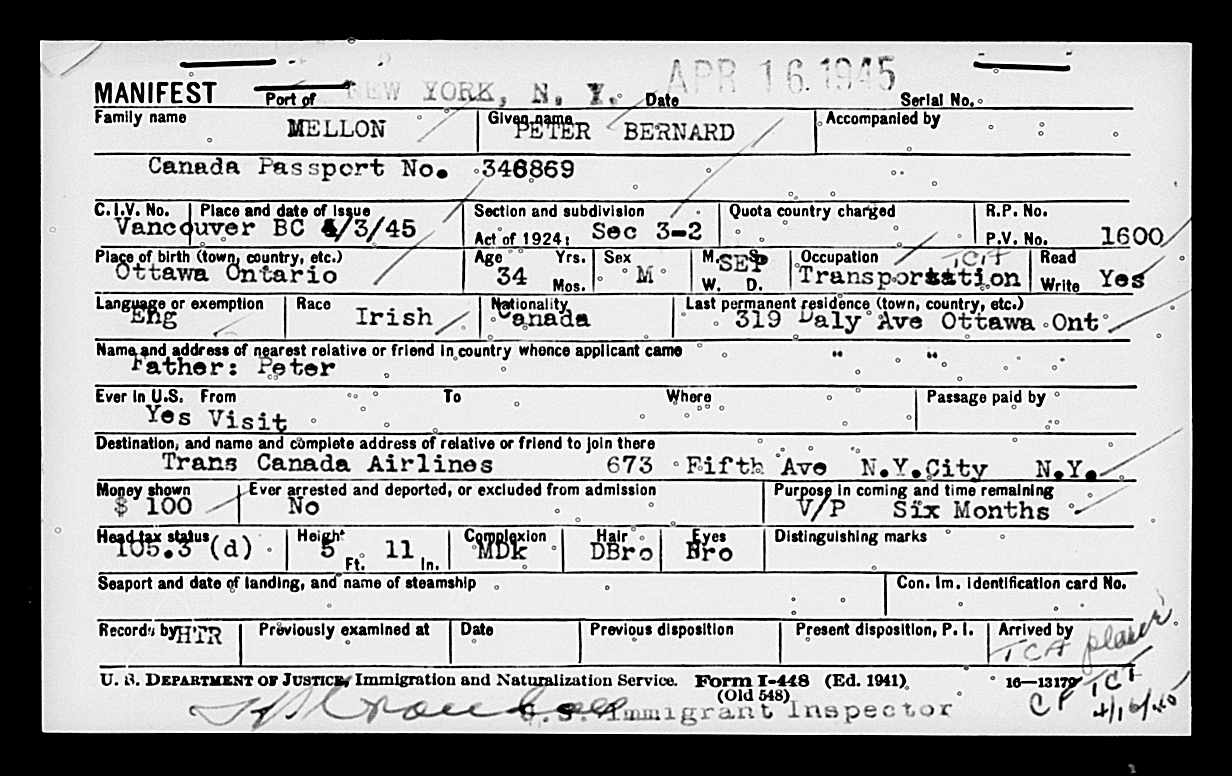 APR 16.1945
MANIFEST Port of NEW YORK, N. Y. Date Serial No.
Family name MELLON Given name PETER BERNARD Accompanied by
Canada Passport No. 346869
C.I.V. No. Place and date of issue Section and subdivision Quota country charged R.P. No.
Vancouver BC 4/3/45 Act of 1924: Sec 3-2 P.V. No. 1600
Place of birth (town, country, etc.) Age Yrs. Sex M. S. Occupation TCA Read
Ottawa Ontario 34 Mos. M SEP W. D. Transportation Write Yes
Language or exemption Race Nationality Last permanent residence (town, country, etc.)
Eng Irish Canada 319 Daly Ave Ottawa Ont
Name and address of nearest relative or friend in country whence applicant came
Father: Peter " "
Ever in U.S. From To Where Passage paid by
Yes Visit
Destination, and name and complete address of relative or friend to join there
Trans Canada Airlines 673 Fifth Ave N.Y.City N.Y.
Money shown Ever arrested and deported, or excluded from admission Purpose in coming and time remaining
$ 100 No V/P Six Months
Head tax status Height Complexion Hair Eyes Distinguishing marks
105.3 (d) 5 Ft. 11 In. MDk DBro Bro
Seaport and date of landing, and name of steamship Con. Im. Identification card No.
Records by HTR Previously examined at Date Previous disposition Present disposition, P. I. Arrived by
TCA plane
U. S. DEPARTMENT OF JUSTICE, Immigration and Naturalization Service. Form I-448 (Ed. 1941) 16-13179
(Old 548)
U.S. Immigrant Inspector
4/16/45